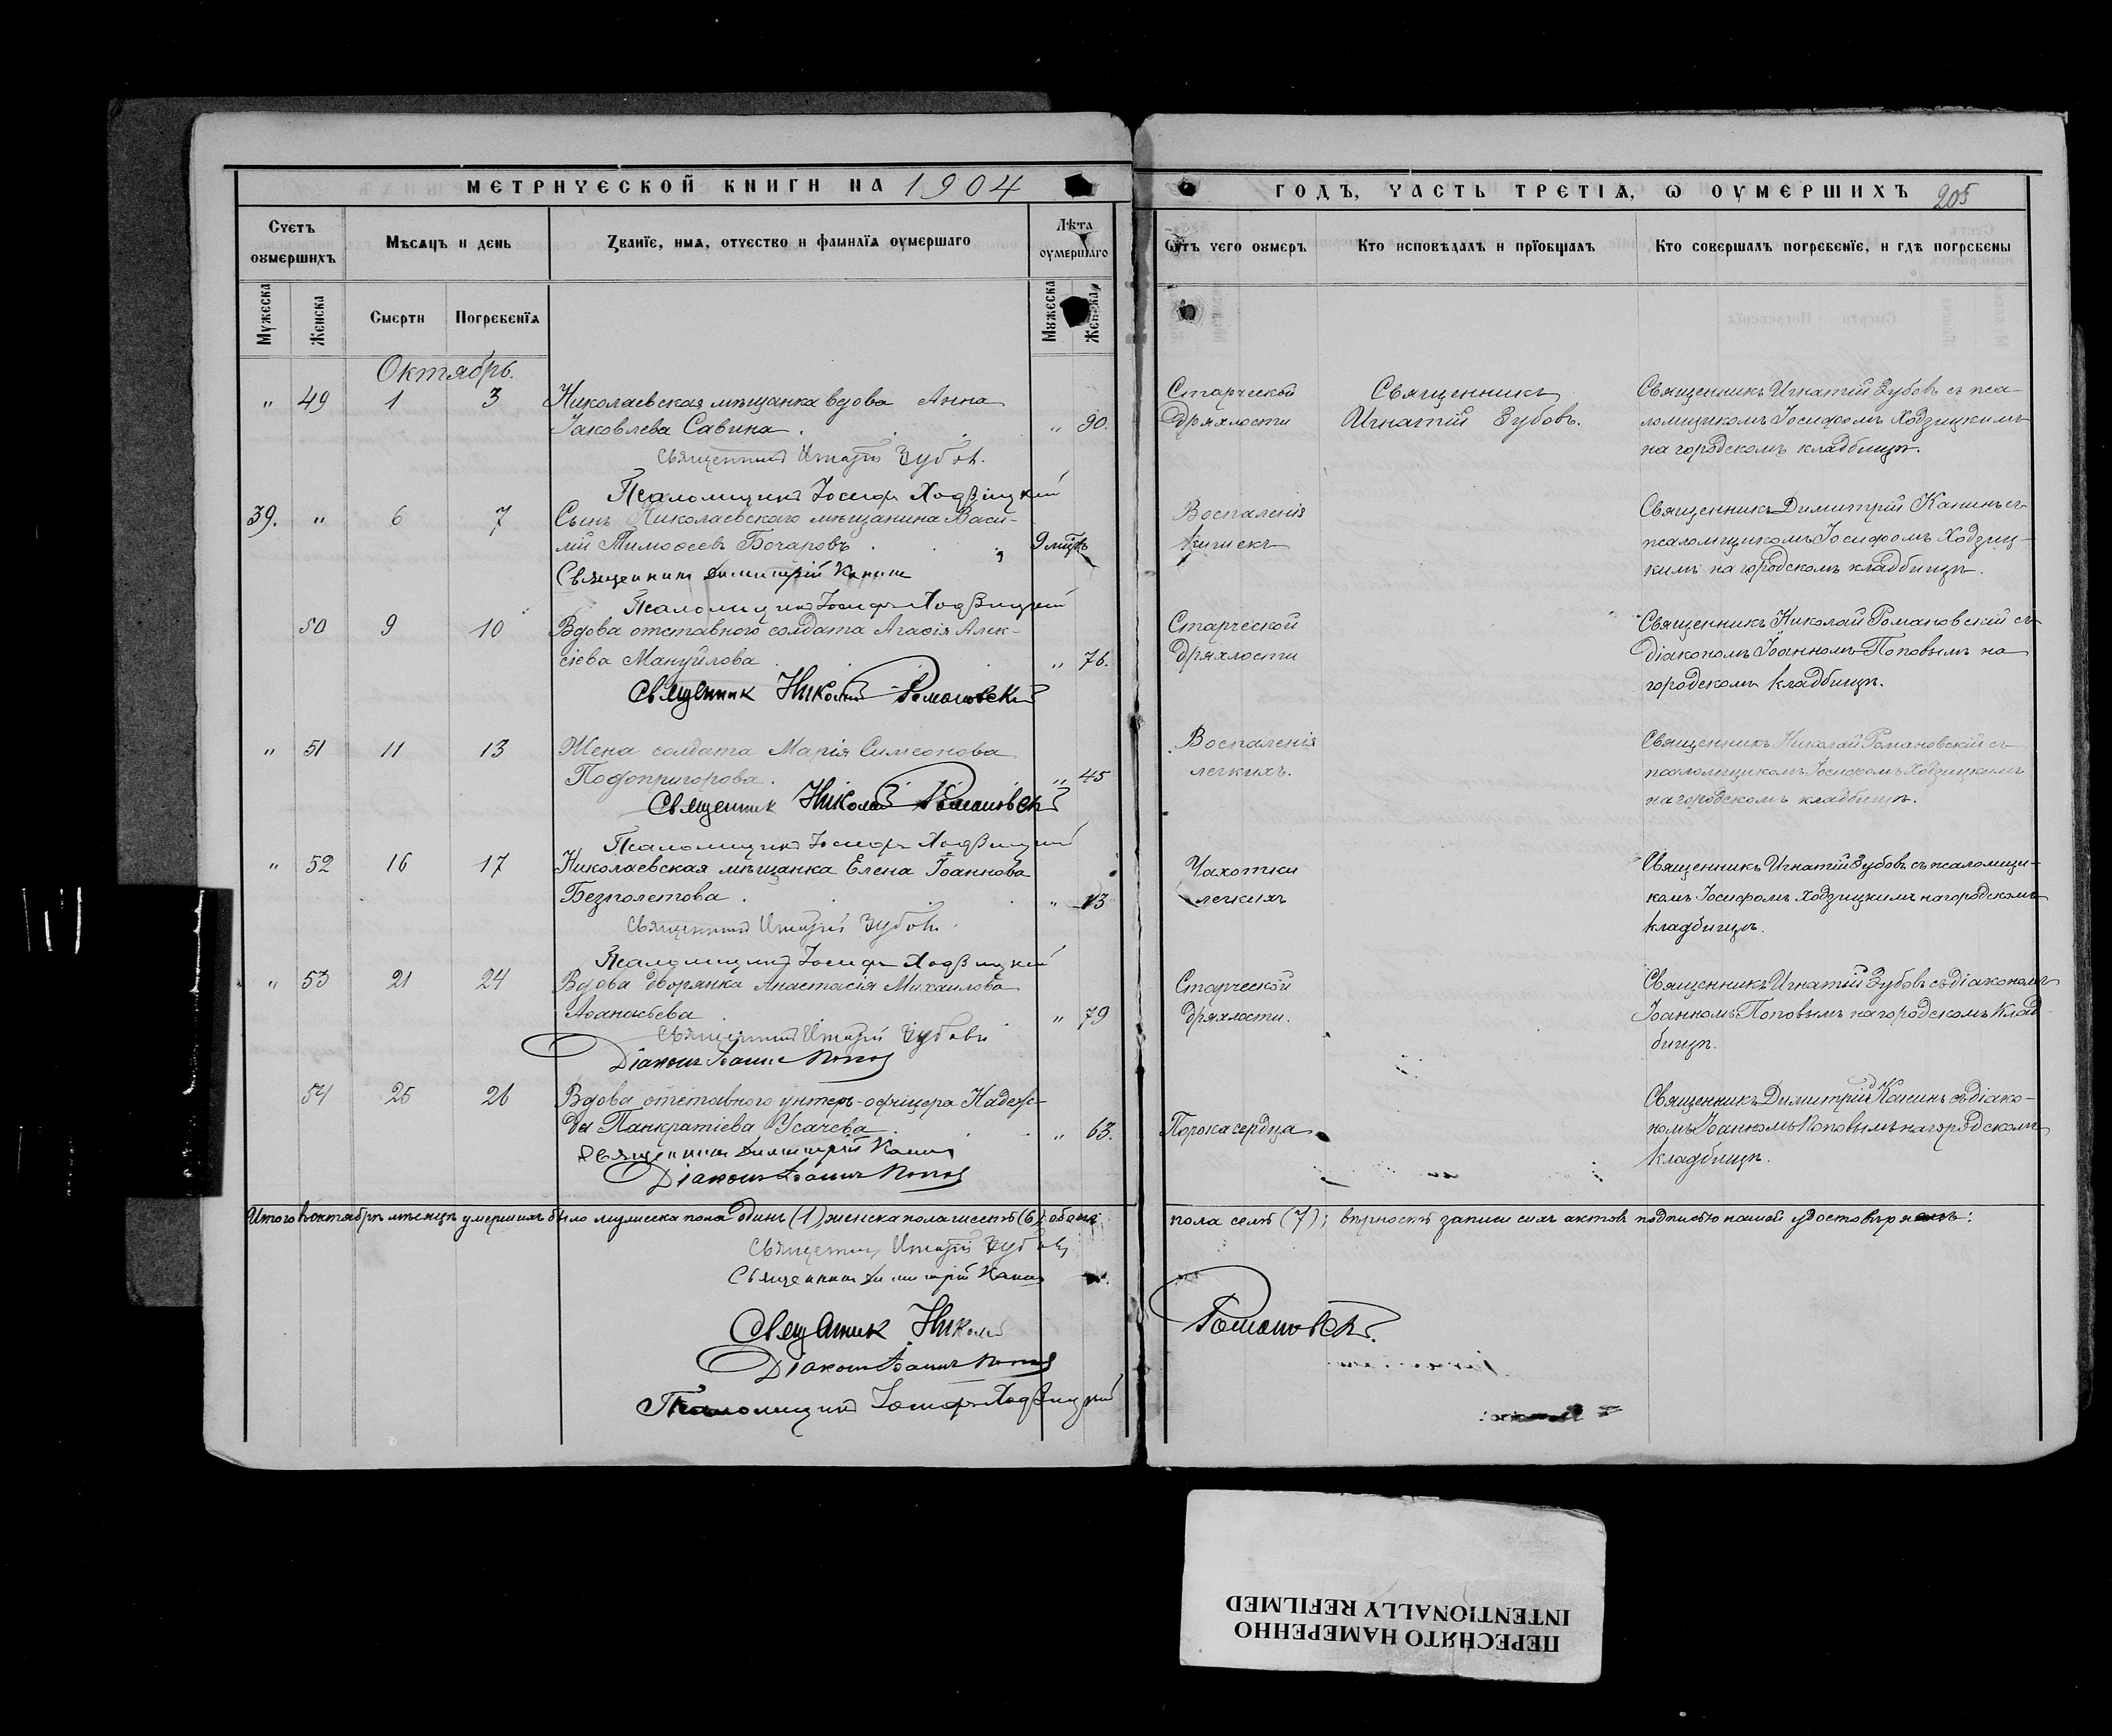 МЕТРИЧЕСКОЙ КНИГИ НА 1904
ГОДЪ, ЧАСТЬ ТРЕТІѦ, Ѡ ОУМЕРШИХЪ 205
Счетъ оумершихъ
Мѣсѧцъ и день
Званїе, имѧ, отчество и фамилїѧ оумершаго
Лѣта оумершаго
Ѿтъ чего оумеръ
Кто исповѣдалъ и прїобщалъ
Кто совершалъ погребенїе, и гдѣ погребены
Мужеска
Женска
Смерти
Погребенїѧ
Мужеска
Женска
Октябрь.
" 49 1 3 Николаевская мѣщанка вдова Анна
Іаковлева Савина. " 90.
Священникъ Игнатій Зубовъ.
Псаломщикъ Іосифъ Ходзицкій
Старческой
дряхлости
Священникъ
Игнатій Зубовъ.
Священникъ Игнатій Зубовъ съ пса-
ломщикомъ Іосифомъ Ходзицкимъ
на городскомъ кладбищѣ.
39. " 6 7 Сынъ Николаевского мѣщанина Васи-
лій Тимоѳеевъ Бочаровъ. 9 мѣс.
Священникъ Димитрій Канинъ
Псаломщикъ Іосифъ Ходзицкій
Воспаленія
кишекъ
Священникъ Димитрій Канинъ съ
псаломщикомъ Іосифомъ Ходзиц-
кимъ на городскомъ кладбищѣ.
50 9 10 Вдова отставного солдата Агаѳія Алек-
сіева Мануйлова " 76.
Священник Николай Романовскій
Старческой
дряхлости
Священникъ Николай Романовскій съ
діакономъ Іоанномъ Поповымъ на
городскомъ кладбищѣ.
" 51 11 13 Жена солдата Марія Симеонова
Подопригорова. " 45
Священник Николай Романовскій
Псаломщикъ Іосифъ Ходзицкій
Воспаленія
легкихъ.
Священникъ Николай Романовскій съ
псаломщикомъ Іосифомъ Ходзицкимъ
на городскомъ кладбищѣ.
" 52 16 17 Николаевская мѣщанка Елена Іоаннова
Безполетова. " 13
Священникъ Игнатій Зубовъ.
Псаломщикъ Іосифъ Ходзицкій
Чахотки
легкихъ
Священникъ Игнатій Зубовъ съ псаломщи-
комъ Іосифомъ Ходзицкимъ на городскомъ
кладбищѣ.
" 53 21 24 Вдова дворянка Анастасія Михаилова
Аѳанасьева " 79
Священникъ Игнатій Зубовъ
Діаконъ Іоаннъ Поповъ
Старческой
дряхлости.
Священникъ Игнатій Зубовъ съ діакономъ
Іоанномъ Поповымъ на городскомъ клад-
бищѣ.
54 25 26 Вдова отставного унтеръ-офицера Надеж-
да Панкратіева Усачева. " 63.
Священникъ Димитрій Канинъ
Діаконъ Іоаннъ Поповъ
Порока сердца
Священникъ Димитрій Канинъ съ діако-
номъ Іоанномъ Поповымъ на городскомъ
кладбищѣ.
Итого в октябрѣ мѣсяцѣ умершихъ было мужеска пола одинъ (1), женска пола шесть (6); обоего
пола семь (7); вѣрность записи сихъ актовъ подписью нашей удостовѣряемъ:
Священникъ Игнатій Зубовъ
Священникъ Димитрій Канинъ
Священник Николай Романовскій.
Діаконъ Іоаннъ Поповъ
Псаломщикъ Іосифъ Ходзицкій
ПЕРЕСНЯТО НАМЕРЕННО
INTENTIONALLY REFILMED